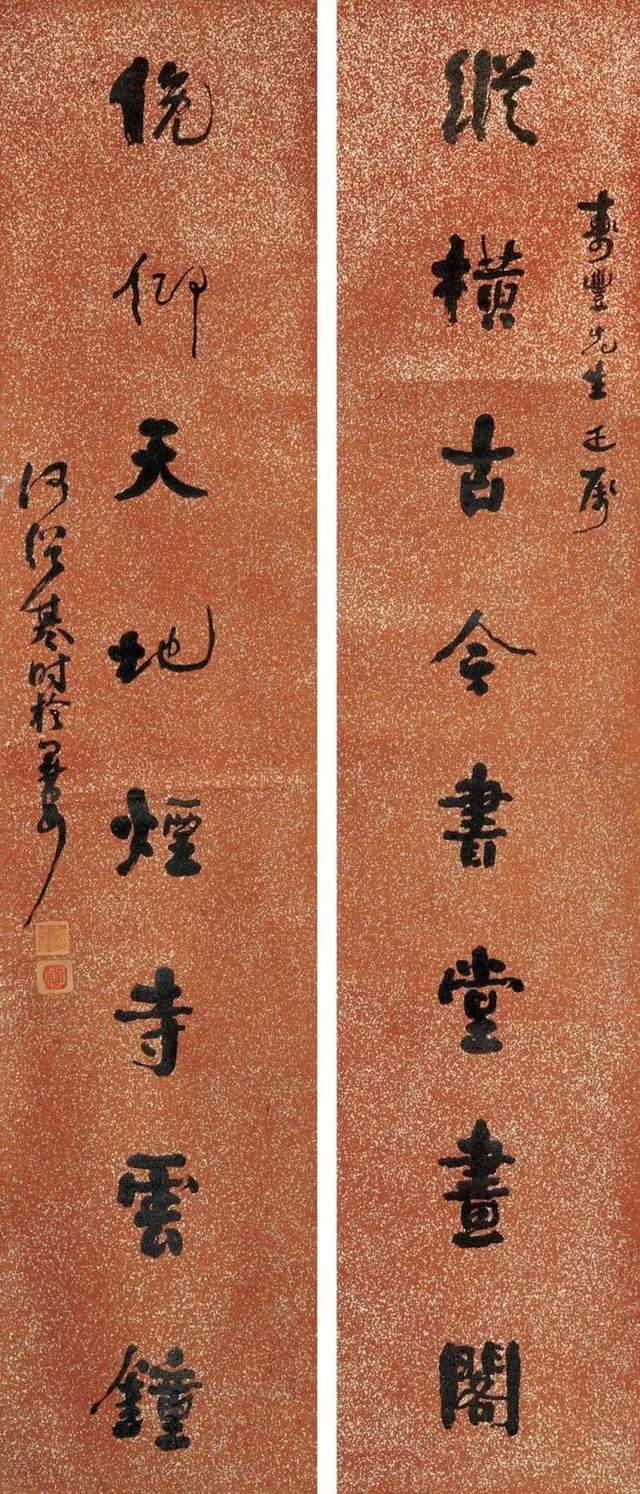 壽豐先生正屬
縱橫古今書堂畫閣
俛仰天地煙寺雲鐘
何紹基時於墨